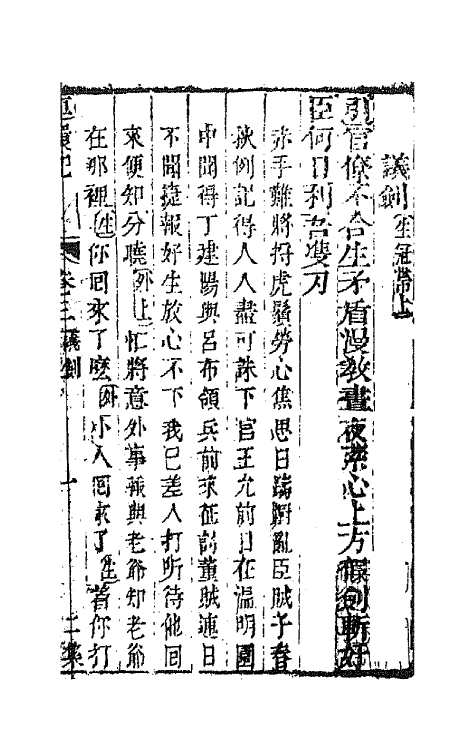 議劍 生冠帶上
引官僚不合生矛盾漫教晝夜縈心上方假劍斬奸
臣何日利吾雙刃
赤手難將捋虎鬚勞心焦思日躊躇亂臣賊子春
秋例記得人人盡可誅下官王允前日在溫明園
中聞得丁建陽與呂布領兵前來征討董賊連日
不聞捷報好生放心不下我已差人打听待他回
來便知分曉 外上 忙將意外事報與老爺知老爺
在那裡 生 你回來了麽 外 小人回來了 生 着你打
連環記 卷三 議劍 一 二集